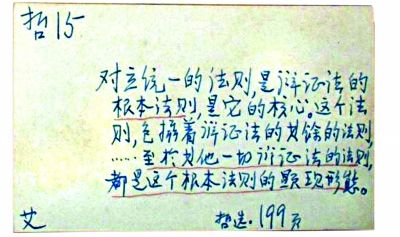 哲15
对立统一的法则,是辩证法的
根本法则,是它的核心。这个法
则,包括着辩证法的其余的法则,
……至于其他一切辩证法的法则,
都是这个根本法则的显现形态。
艾 哲选.199页